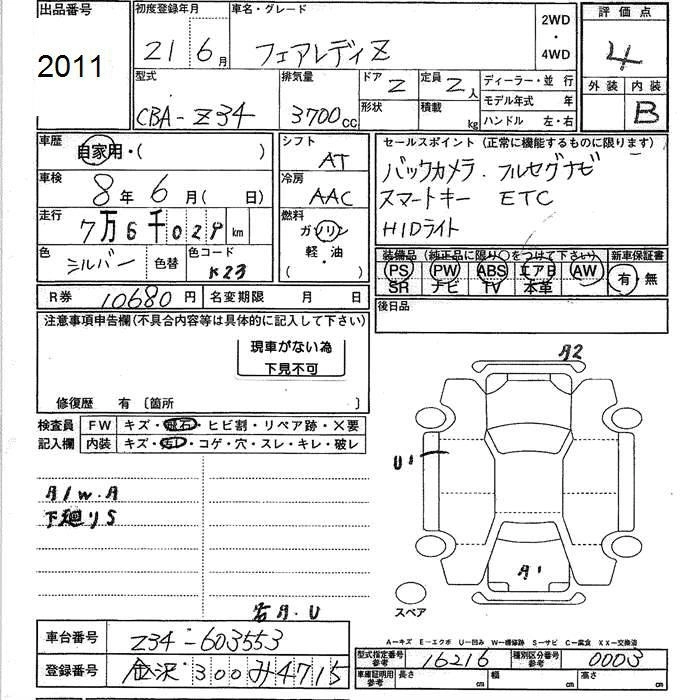 出品番号 初度登録年月 車名・グレード 2WD・4WD 評価点
2011 21年 6月 フェアレディZ 4
外装 内装 B
型式 排気量 ドア 2 定員 2人 ディーラー・並行
CBA-Z34 3700cc 形状 積載 kg モデル年式 年
ハンドル 左・右
車歴 自家用・( ) シフト AT セールスポイント (正常に機能するものに限ります)
車検 8年 6月( 日) 冷房 AAC バックカメラ・フルセグナビ
スマートキー ETC
走行 7万6千029km 燃料 ガソリン HIDライト
軽・油
( )
色 シルバー 色替 色コード K23
装備品 (純正品に限り○をつけて下さい) 新車保証書
PS PW ABS エアB AW 有・無
SR ナビ TV 本革
R券 10680円 名変期限 月 日 後日品
注意事項申告欄(不具合内容等は具体的に記入して下さい)
現車がない為
下見不可
修復歴 有 〔箇所 〕
検査員 FW キズ・飛石・ヒビ割・リペア跡・×要
記入欄 内装 キズ・汚レ・コゲ・穴・スレ・キレ・破レ
A2
U1
A/W.A
下廻りS
A1
スペア
右A.U
A-キズ E-エクボ U-凹み W-補修跡 S-サビ C-腐食 XX-交換済
車台番号 Z34-603553
登録番号 金沢 300 み 4715
型式指定番号 参考 16216 種別区分番号 参考 0003
車庫証明用 参考 長さ cm 幅 cm 高さ cm